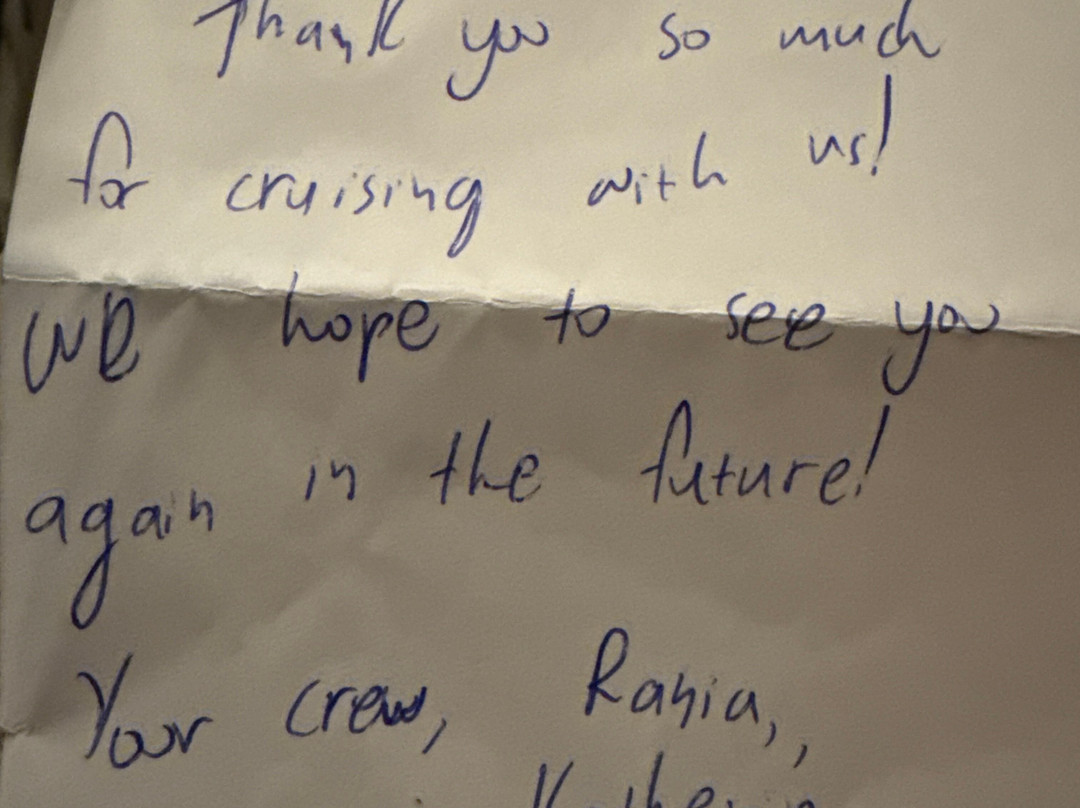 Thank you so much
for cruising with us!
We hope to see you
again in the future!
Your crew, Rania,,